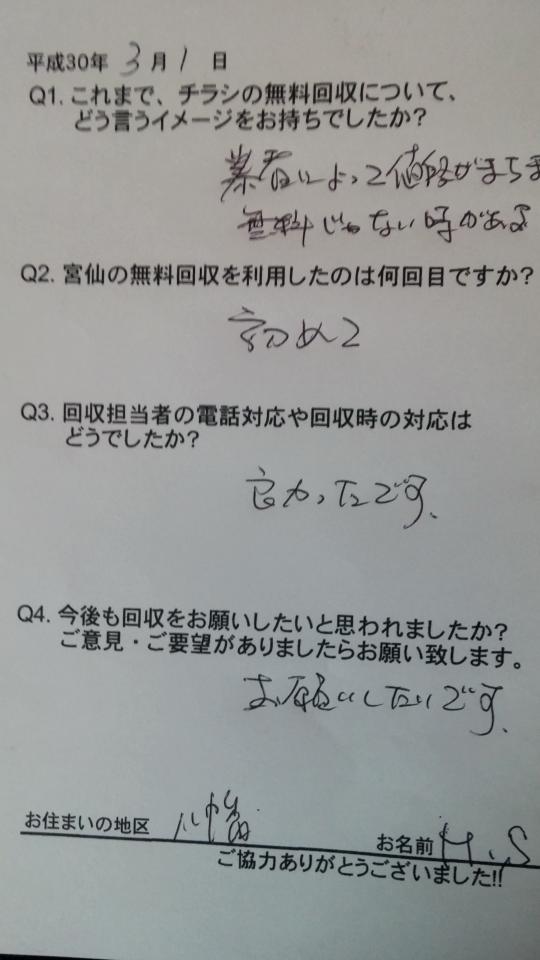 平成30年 3月 1日
Q1. これまで、チラシの無料回収について、
どう言うイメージをお持ちでしたか?
業者によって値段がまちま
無料じゃない時がある
Q2. 宮仙の無料回収を利用したのは何回目ですか?
初めて
Q3. 回収担当者の電話対応や回収時の対応は
どうでしたか?
良かったです、
Q4. 今後も回収をお願いしたいと思われましたか?
ご意見・ご要望がありましたらお願い致します。
お願いしたいです、
お住まいの地区 お名前 H,S
ご協力ありがとうございました!!